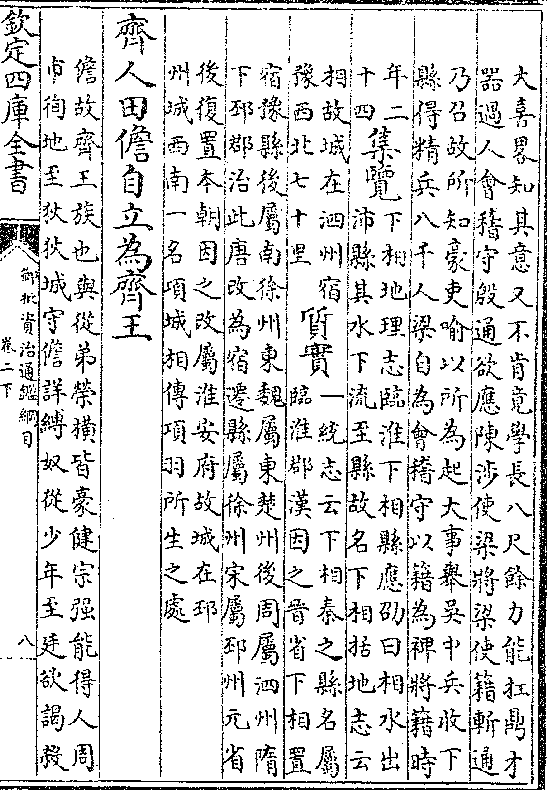 大喜畧知其意又不肯竟學長八尺餘力能扛鼎才
器過人會稽守殷通欲應陳涉使梁將梁使籍斬通
乃召故所知豪吏喻以所為起大事舉吳中兵收下
縣得精兵八千人梁自為會稽守以籍為裨將籍時
年二
十四
集覽
下相地理志臨淮下相縣應劭曰相水出
沛縣其水下流至縣故名下相括地志云
相故城在泗州宿
豫西北七十里
質實
一統志云下相秦之縣名屬
臨淮郡漢因之晉省下相置
宿豫縣後屬南徐州東魏屬東楚州後周屬泗州隋
下邳郡治此唐改為宿遷縣屬徐州宋屬邳州元省
後復置本朝因之改屬淮安府故城在邳
州城西南一名項城相傳項羽所生之處
齊人田儋自立為齊王
儋故齊王族也與從弟榮橫皆豪健宗强能得人周
市徇地至狄狄城守儋詳縛奴從少年至廷欲謁殺
欽定四庫全書
御批資治通鑑綱目
卷二下
八